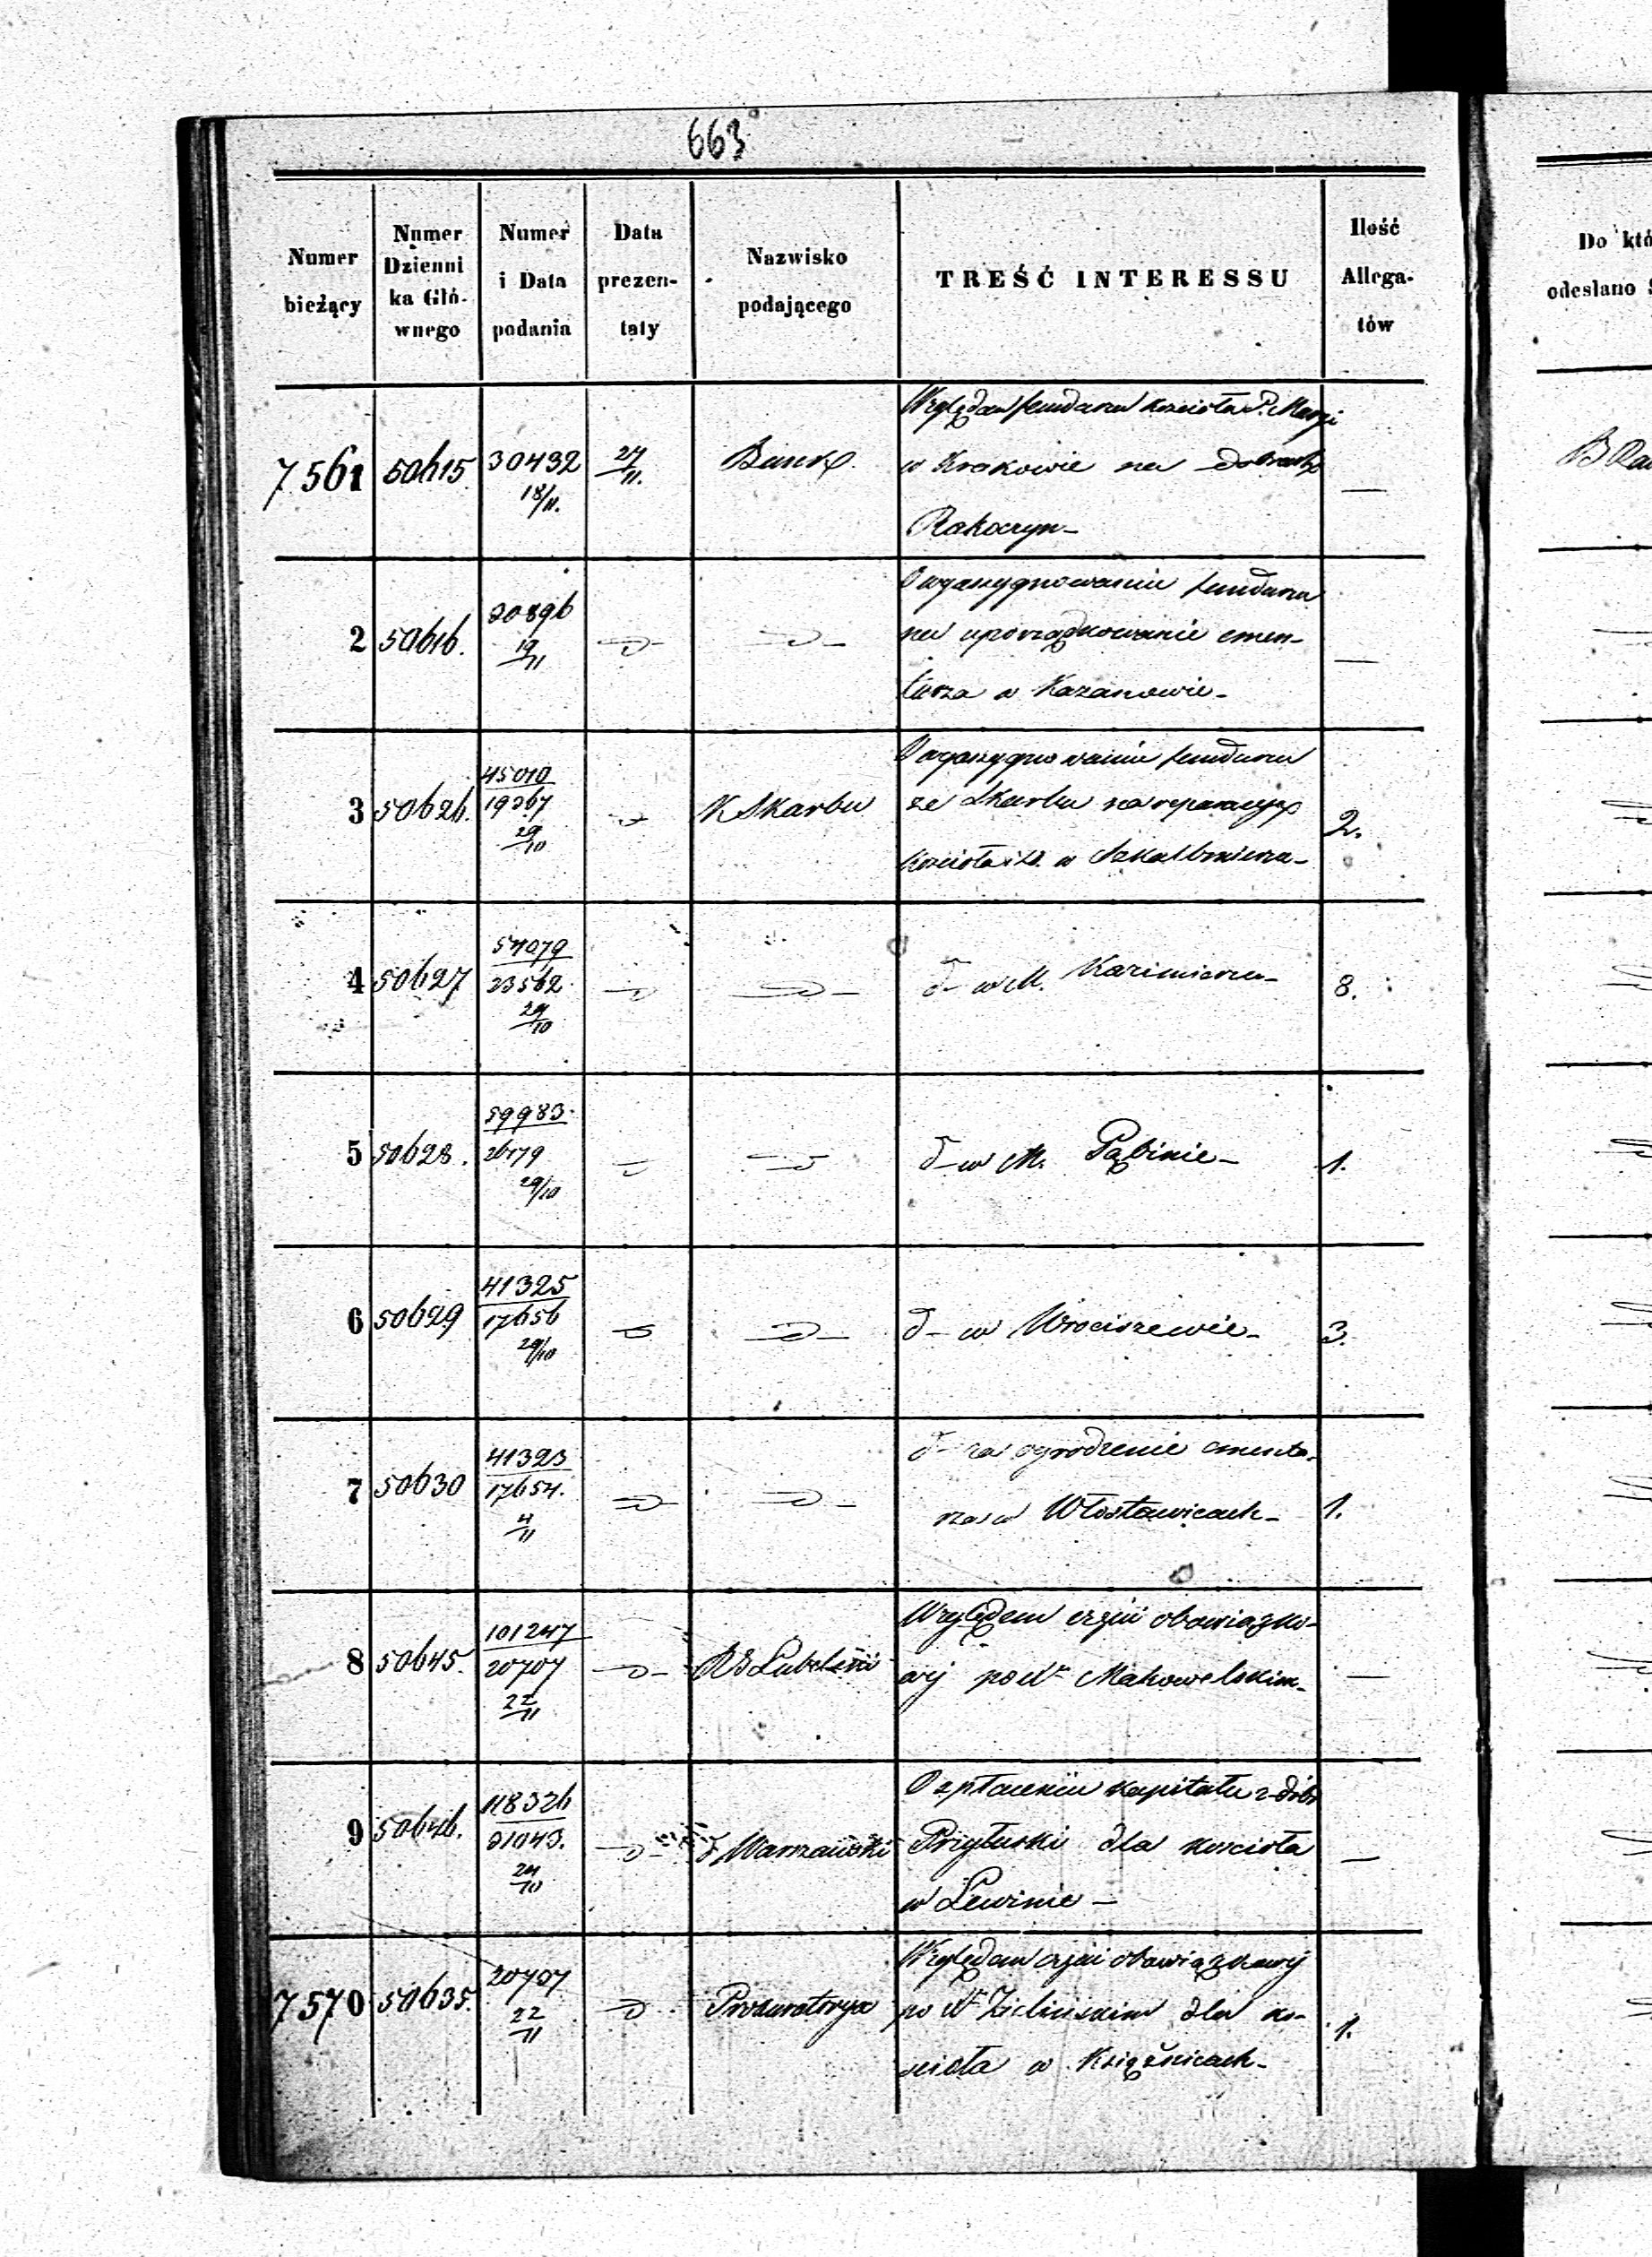 663
Numer bieżący
Numer Dzienni ka Głó- wnego
Numer i Data podania
Data prezen- taty
Nazwisko podającego
TREŚĆ INTERESSU
Ilość Allega- tów
Do któ
odesłano
7561 50615 30432 18/11. 27/11. Bank Względem funduszu kościoła P. Maryi
w Krakowie na dobrach —
Rakoszyn –
2 50616. 30896 19/11 –D– –D– O wyassygnowanie funduszu
na uporządkowanie cmen–
tarza w Kazanowie – —
3 50626. 45010 19367 29/10 –D– K Skarbu O wyassygnowanie funduszu
ze Skarbu na reparacyę 2.
kościoła w Skalbmierzu –
4 50627 54079 23562 29/10 –D– –D– d– w M. Kazimierzu – 8.
5 50628. 59983. 26179 29/10 –D– –D– d– w M. Gąbinie – 1.
6 50629 41325 17656 29/10 –D– –D– d– w Wrociszewie – 3.
7 50630 41323 17654. 4/11 –D– –D– d– na ogrodzenie cmenta–
rza w Włostowicach – 1.
8 50645. 101247 20707 22/11 –D– RG Lubelski Względem erekcii obowiązko–
wej po Makowelskim – —
9 50646. 118326 31043. 24/10 –D– Warszawski O spłaceniu kapitału z dóbr
Przyłuski dla kościoła —
w Lewinie –
7570 50635. 20707 22/11 –D– Prokuratorya Względem obowiązkowej
po Zielińskim dla ko–
ścioła w Książnicach – 1.